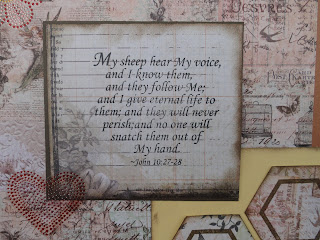 My sheep hear My voice,
and I know them,
and they follow Me;
and I give eternal life to
them; and they will never
perish;and no one will
snatch them out of
My hand.
~John 10:27-28